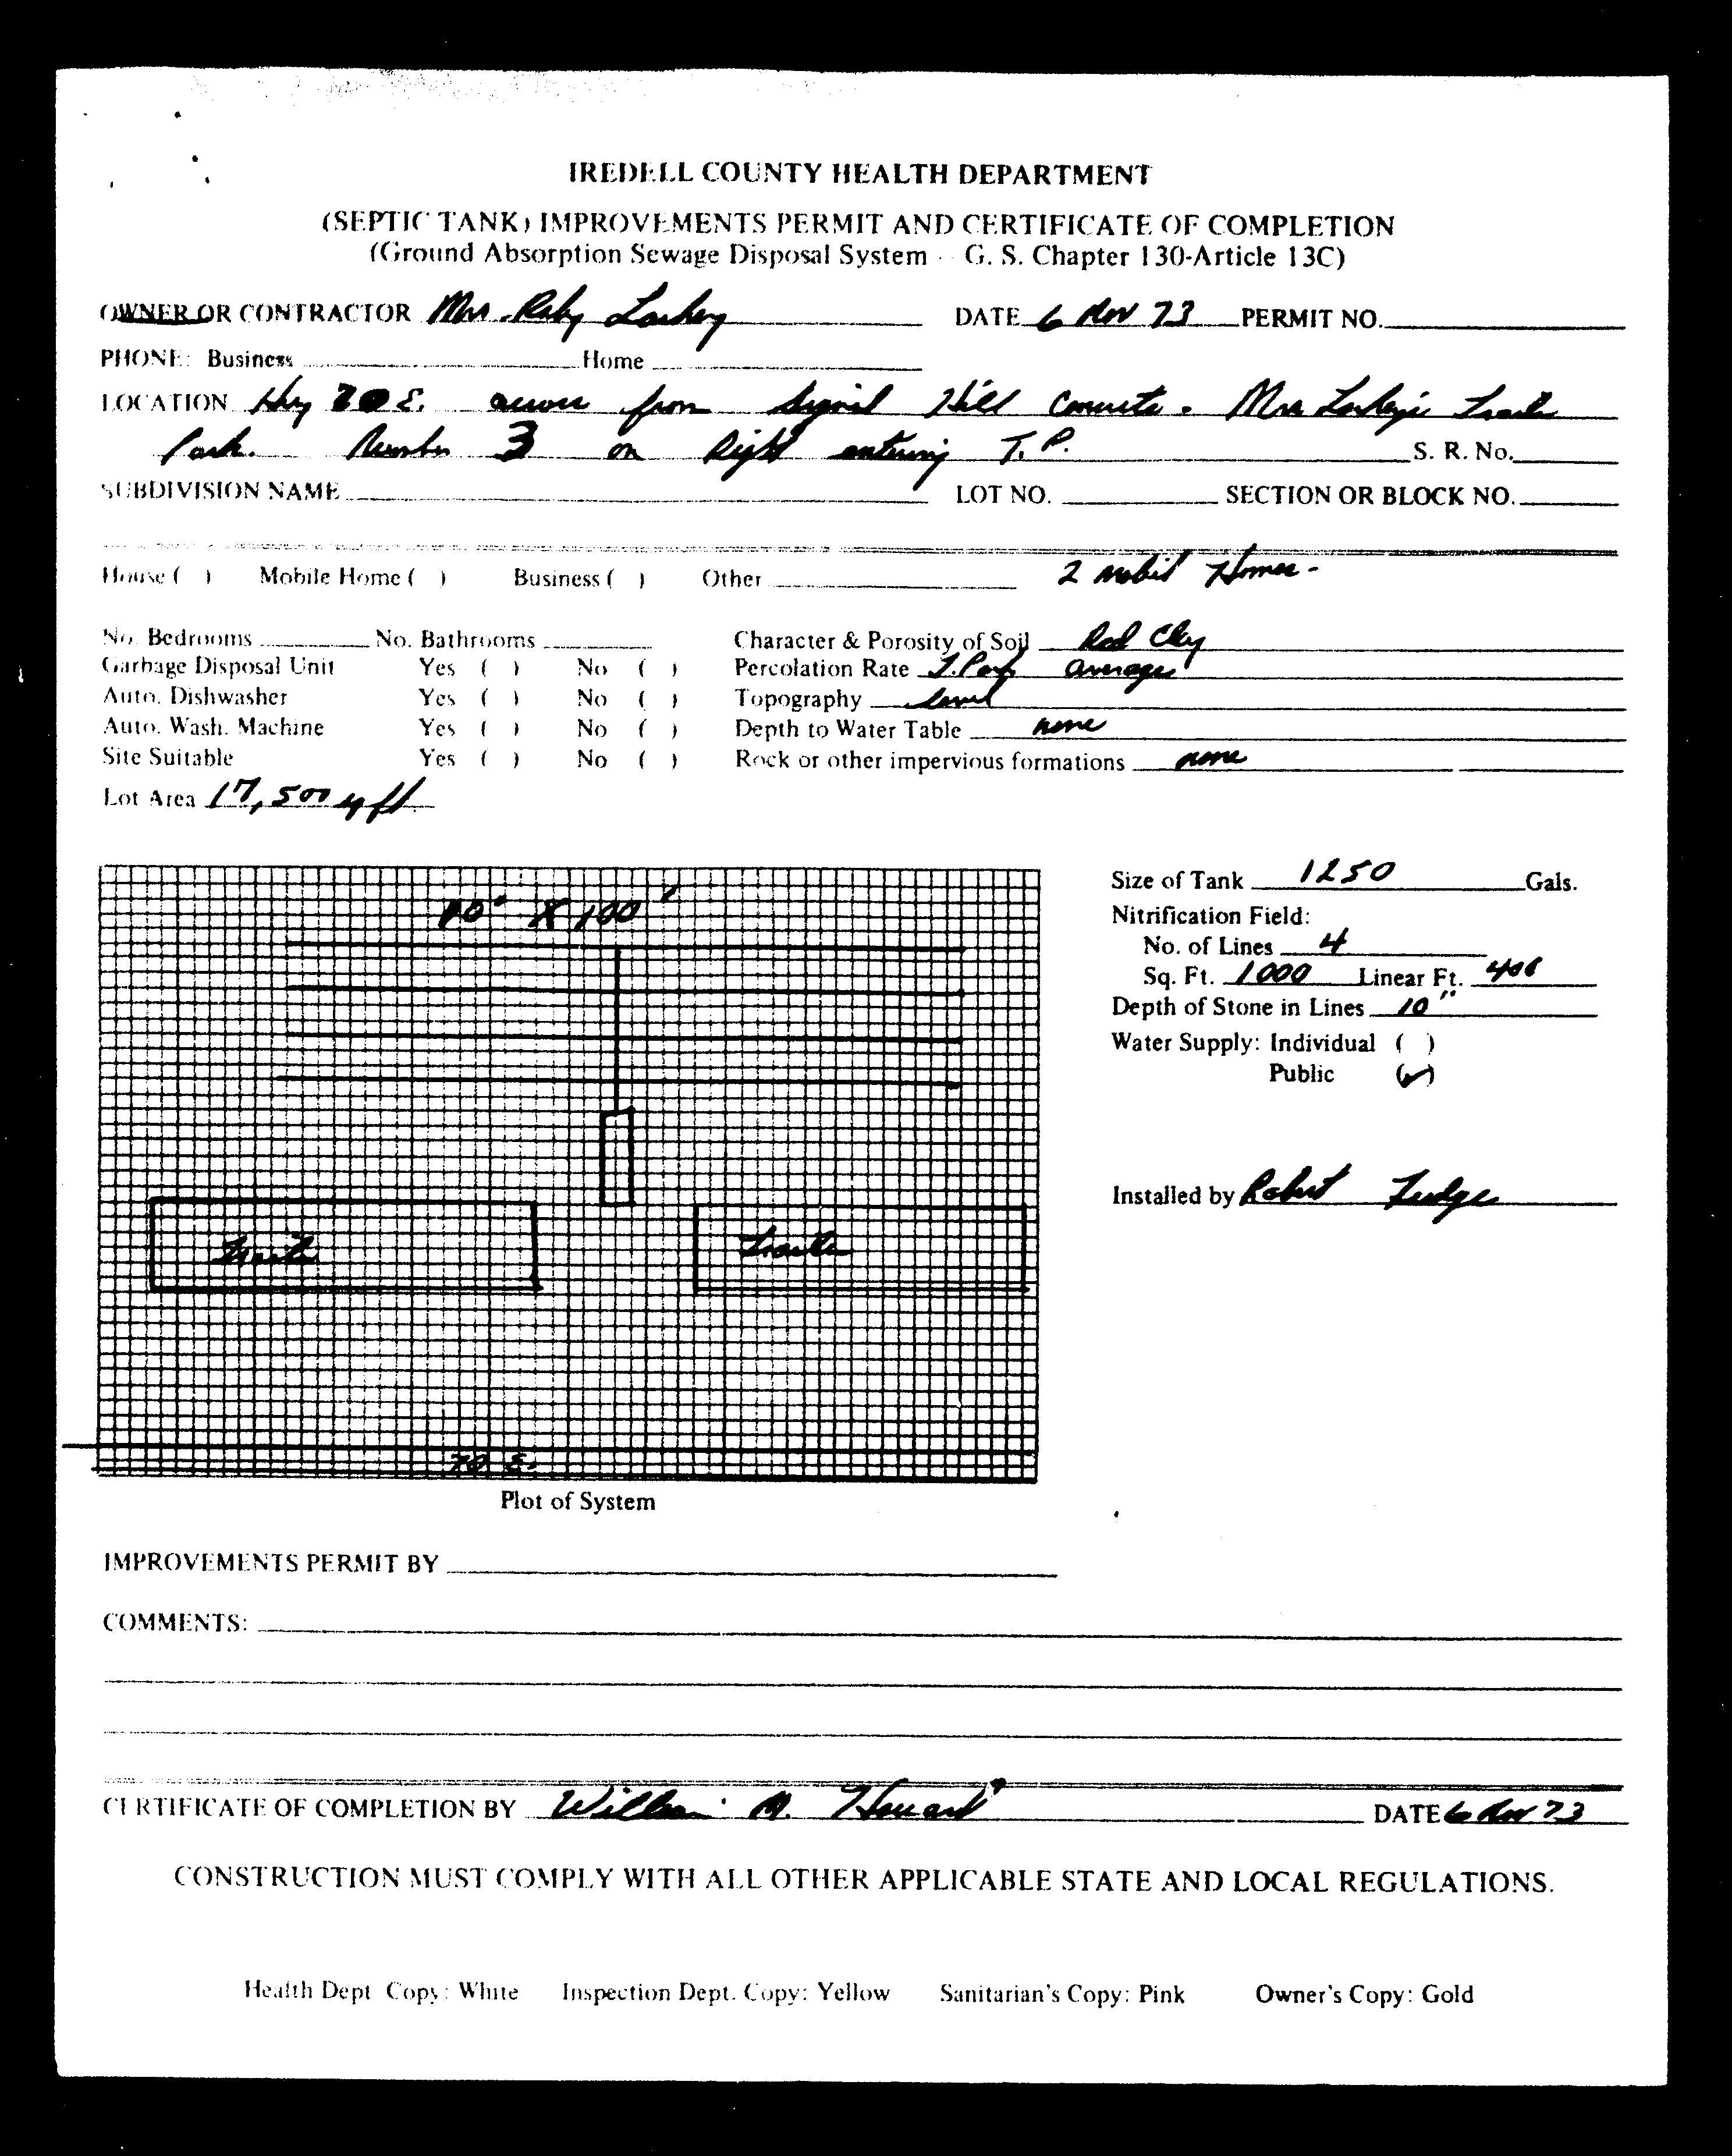 IREDELL COUNTY HEALTH DEPARTMENT
(SEPTIC TANK) IMPROVEMENTS PERMIT AND CERTIFICATE OF COMPLETION
(Ground Absorption Sewage Disposal System - G. S. Chapter 130-Article 13C)
OWNER OR CONTRACTOR Mrs. DATE 6 Nov 73 PERMIT NO.
PHONE: Business Home
LOCATION Hwy 70 E. across from Signal Hill Concrete. Mrs Trailer
Park. Number 3 on Right entering T.P. S. R. No.
SUBDIVISION NAME LOT NO. SECTION OR BLOCK NO.
House ( ) Mobile Home ( ) Business ( ) Other 2 Mobil Homes -
No. Bedrooms No. Bathrooms Character & Porosity of Soil Red Clay
Garbage Disposal Unit Yes ( ) No ( ) Percolation Rate T. Park average
Auto. Dishwasher Yes ( ) No ( ) Topography level
Auto. Wash. Machine Yes ( ) No ( ) Depth to Water Table none
Site Suitable Yes ( ) No ( ) Rock or other impervious formations none
Lot Area 17,500 sq ft.
X 100'
Size of Tank 1250 Gals.
Nitrification Field:
No. of Lines 4
Sq. Ft. 1000 Linear Ft.
Depth of Stone in Lines 10"
Water Supply: Individual ( )
Public (✓)
Installed by Robert Fudge
Trailer Trailer
70 E.
Plot of System
IMPROVEMENTS PERMIT BY
COMMENTS:
CERTIFICATE OF COMPLETION BY William A. Howard DATE 6 Nov 73
CONSTRUCTION MUST COMPLY WITH ALL OTHER APPLICABLE STATE AND LOCAL REGULATIONS.
Health Dept Copy: White Inspection Dept. Copy: Yellow Sanitarian's Copy: Pink Owner's Copy: Gold